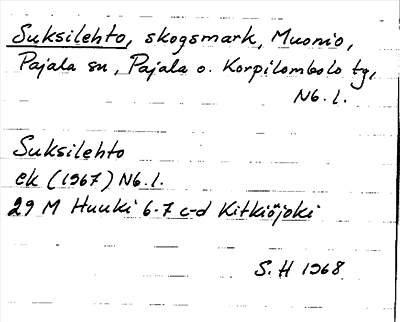 Suksilehto, skogsmark, Muonio,
Pajala sn, Pajala o. Korpilombolo tg,
Nb. l.
Suksilehto
ek (1967) Nb. l.
29 M Huuki 6-7 c-d Kitkiöjoki
S. H 1968